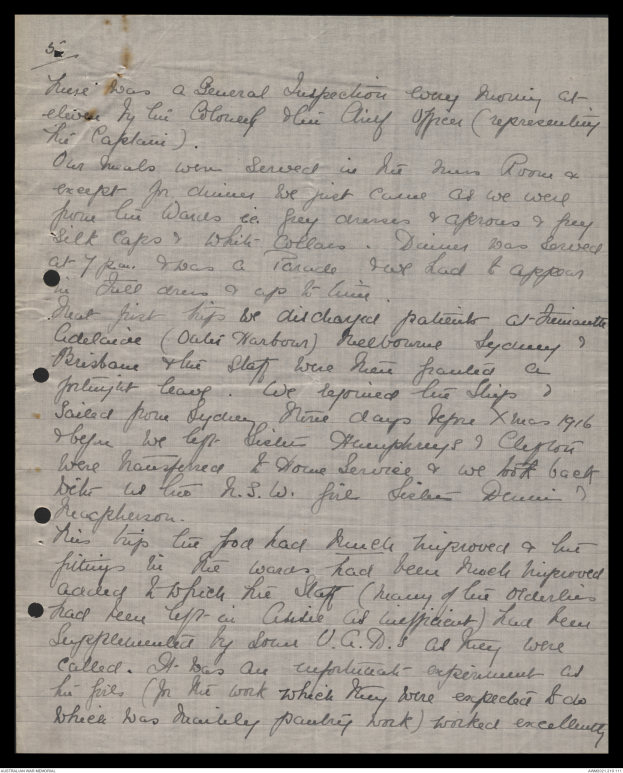 5.
There was a General Inspection every morning at
eleven by the Colonel & the Chief Officer (representing
the Captain).
Our meals were served in the Mess Room &
except for dinner we just came as we were
from the Wards ie. grey dresses & aprons & grey
Silk Caps & White Collars. Dinner was served
at 7 p.m. & was a Parade & we had to appear
in full dress & up to time.
That first trip we discharged patients at Fremantle
Adelaide (Outer Harbour) Melbourne Sydney &
Brisbane & the Staff were then granted a
fortnight leave. We rejoined the Ship &
Sailed from Sydney nine days before Xmas 1916
& before we left Sisters Humphreys & Clifton
were transferred to Home Service & we took back
with us two N.S.W. girls Sisters &
Macpherson.
This trip the food had much improved & the
fittings in the wards had been much improved
added to which the Staff (many of the orderlies
had been left in as inefficient) had been
Supplemented by some V.A.D.s as they were
called. It was an unfortunate experiment as
the girls (for the work which they were expected to do
which was mainly pantry work) worked excellently
AUSTRALIAN WAR MEMORIAL